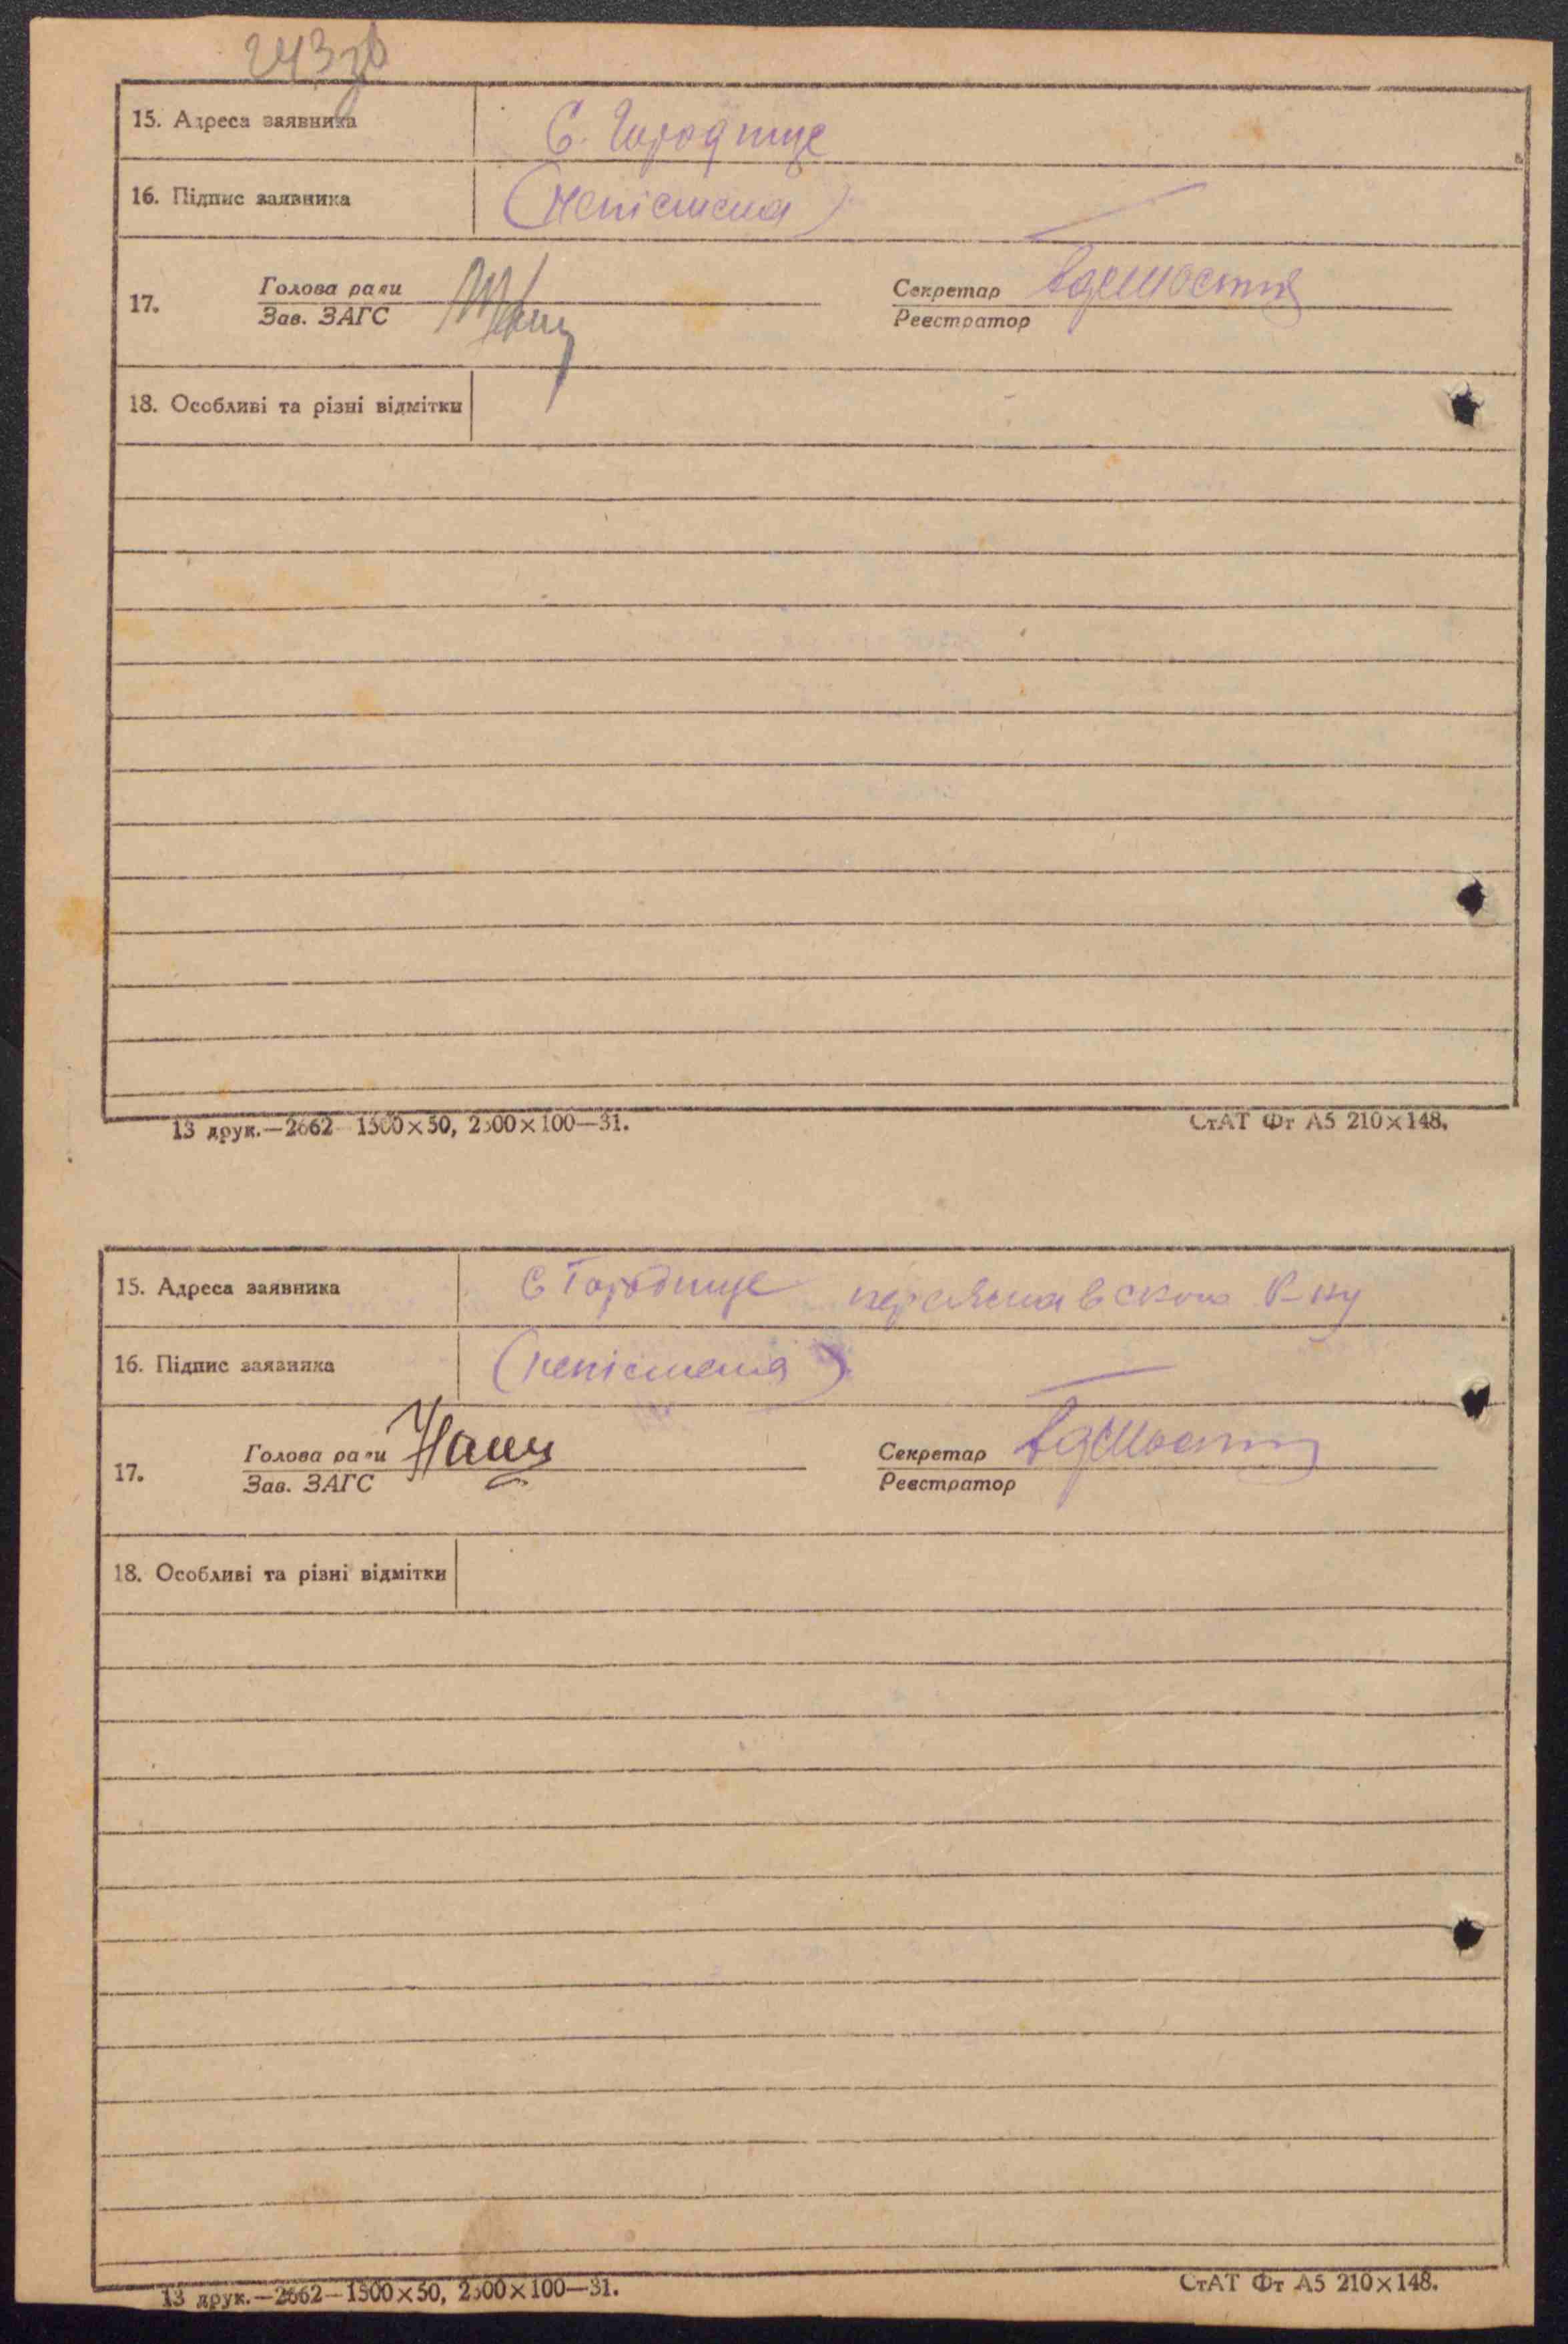 243зв
15. Адреса заявника С. Городище
16. Підпис заявника (непісмена)
17. Голова ради Секретар
Зав. ЗАГС Реєстратор
18. Особливі та різні відмітки
13 друк.—2662—1500×50, 2500×100—31. СтАТ Фт А5 210×148.
15. Адреса заявника С Городище переяславского Р-ну
16. Підпис заявника (непісмена)
17. Голова ради Секретар
Зав. ЗАГС Реєстратор
18. Особливі та різні відмітки
13 друк.—2662—1500×50, 2500×100—31. СтАТ Фт А5 210×148.